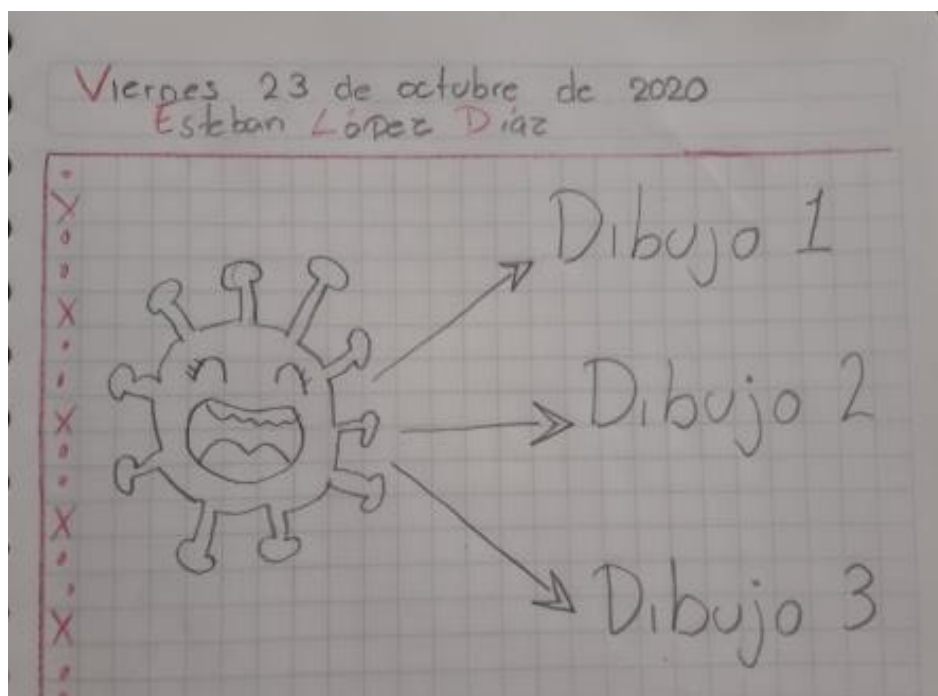 Viernes 23 de octubre de 2020
Esteban López Díaz
Dibujo 1
Dibujo 2
Dibujo 3